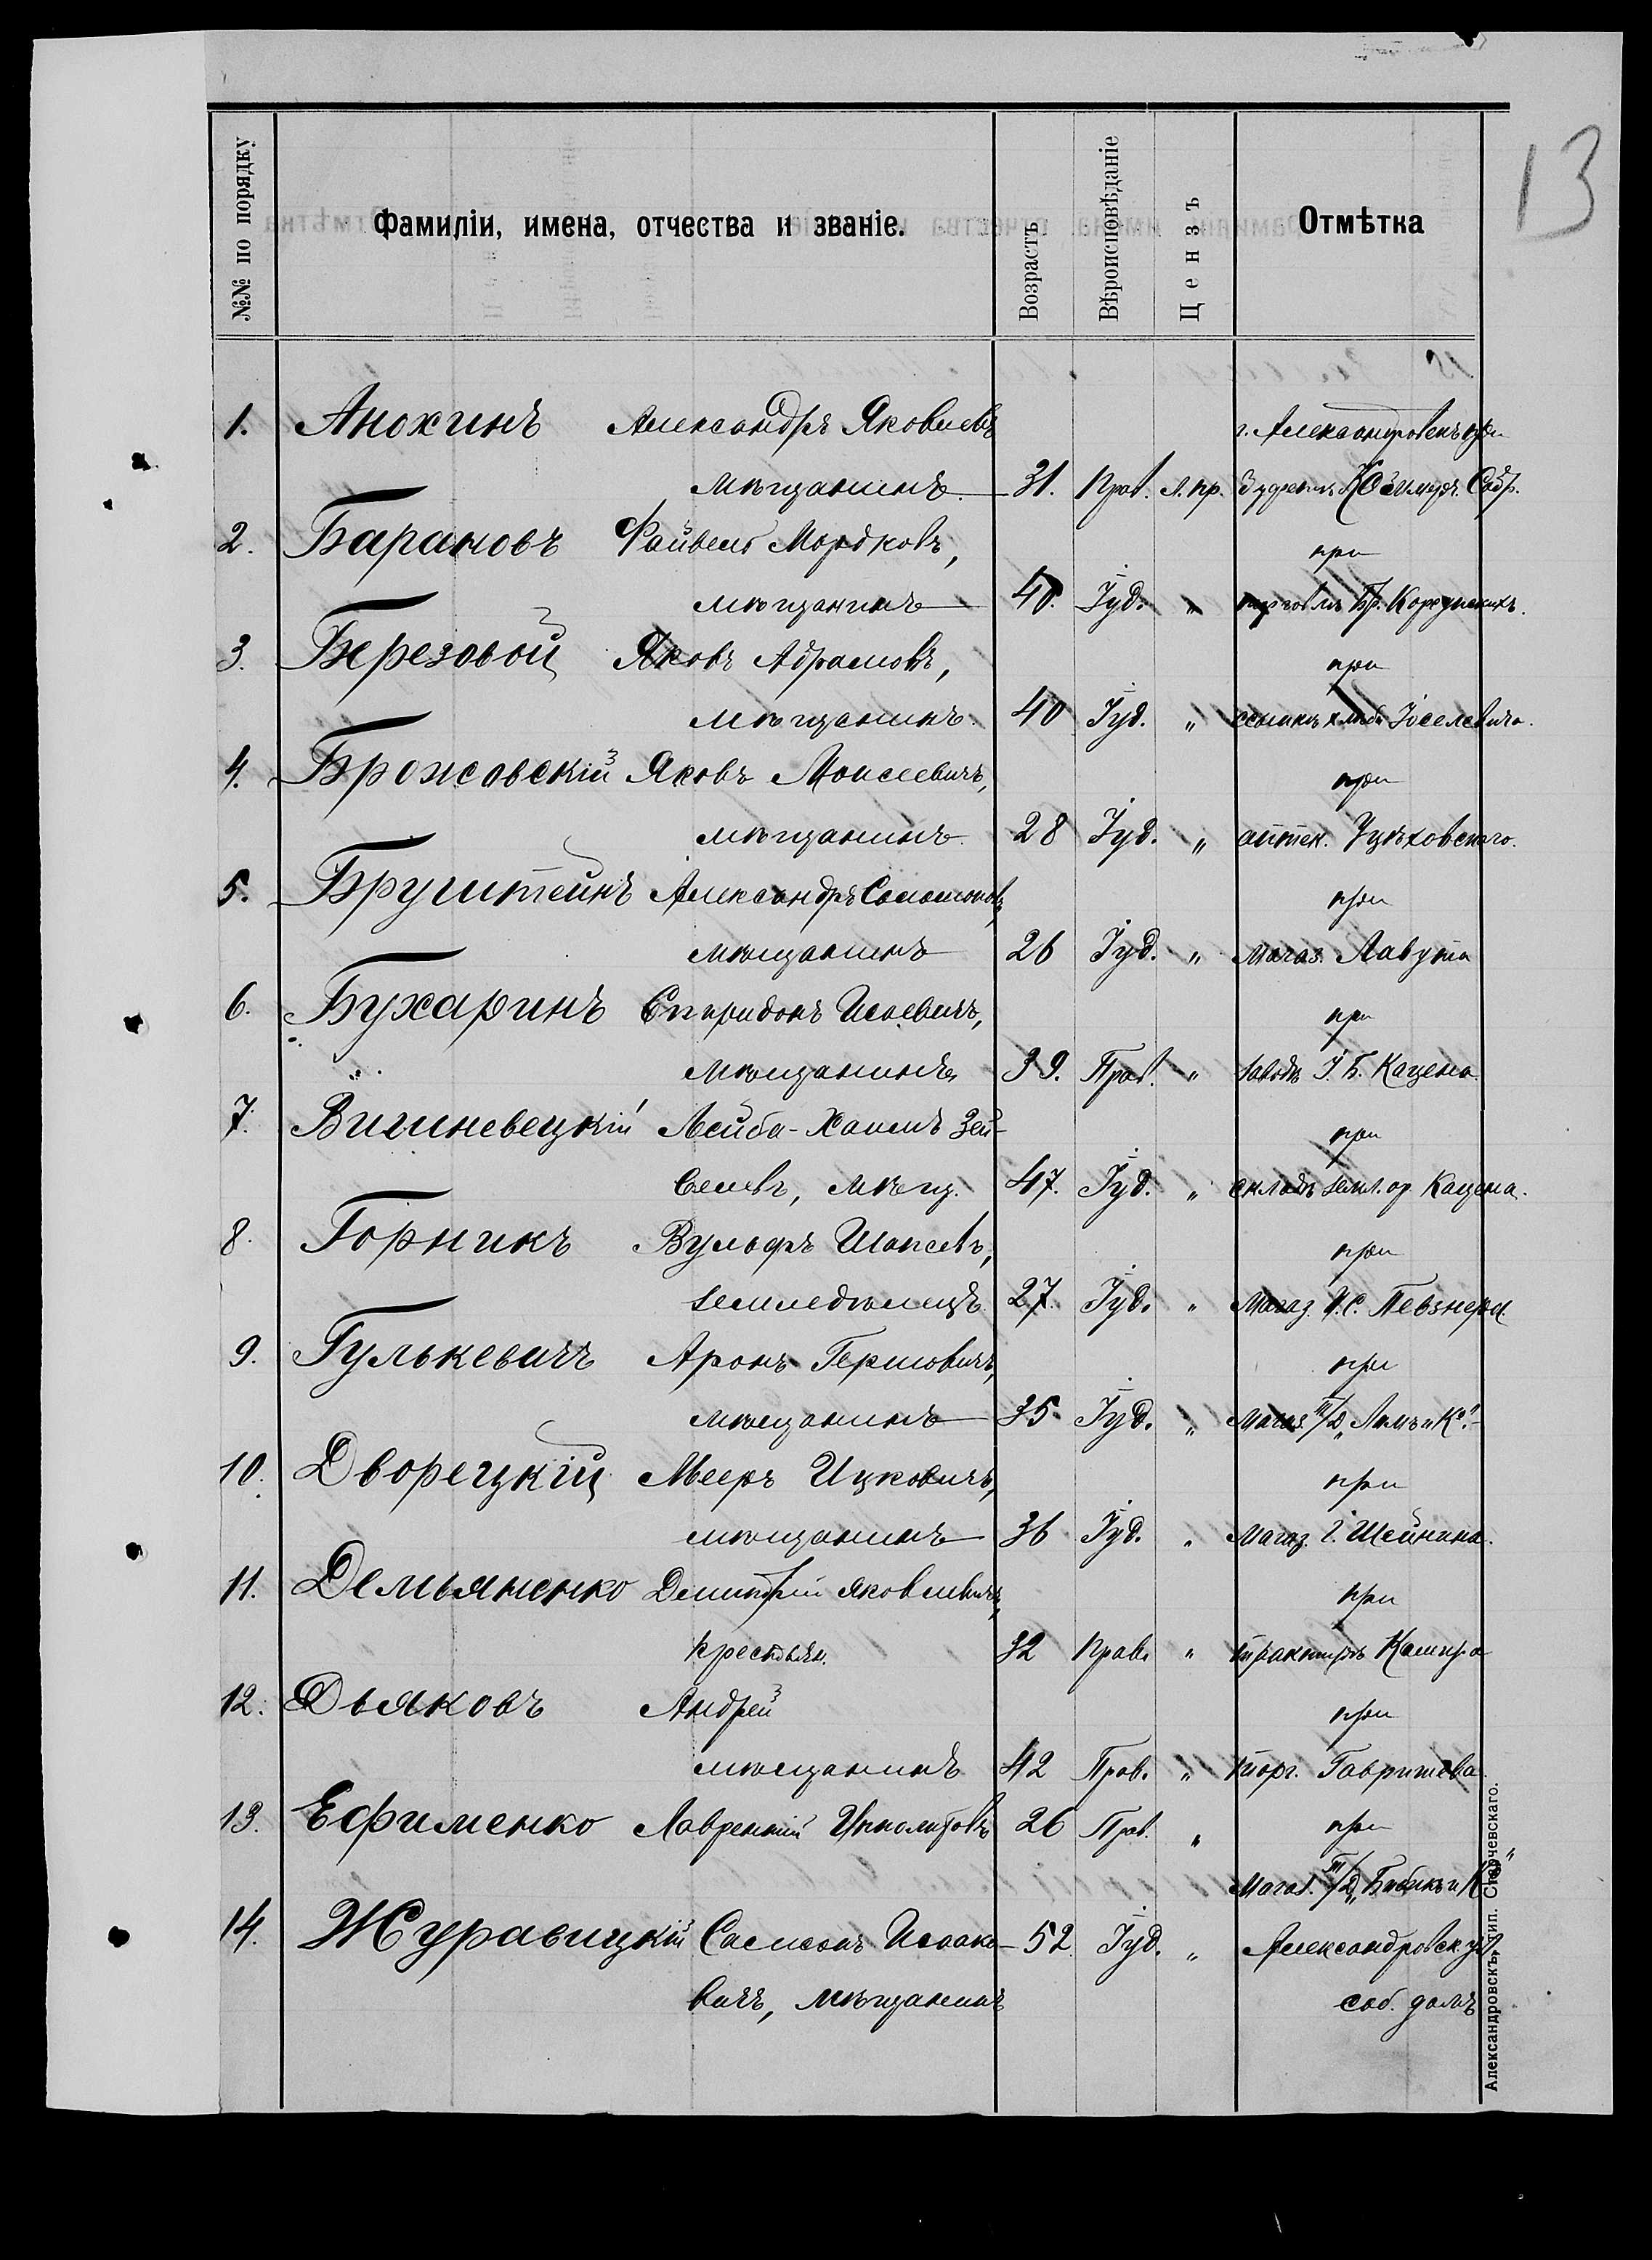 13
№№ по порядку
Фамиліи, имена, отчества и званіе.
Возрастъ
Вѣроисповѣданіе
Цензъ
Отмѣтка
1. Анохинъ Александръ Яковлевъ
мѣщанинъ. 31. Прав. л. пр.
2. Барановъ Файвель Мордковъ, при
мѣщанинъ 40. Іуд. „ торговлѣ Бр.
3. Березовой Яковъ Абрамовъ, при
мѣщанинъ. 40 Іуд. „ ссыпкѣ хлѣба Іоселевича.
4. Брожовскій Яковъ Моисеевичъ, при
мѣщанинъ. 28 Іуд. „ аптек.
5. Бруштейнъ Александръ Соломоновъ, при
мѣщанинъ 26 Іуд. „ магаз. Лавута
6. Бухаринъ Спиридонъ Исаевичъ, при
мѣщанинъ 39. Прав. „ заводѣ І. Б. Кацена.
7. Вишневецкій Лейба-Хаимъ Зей- при
велевъ, мѣщ. 47. Іуд. „ складѣ земл. ор. Кацена.
8. Горникъ Вульфъ при
земледѣлецъ 27. Іуд. „ Магаз. И. С. Певзнера
9. Гулькевичъ Аронъ Гершовичъ, при
мѣщанинъ 35. Іуд. „ Магаз. Т/Д „ и Ко“
10. Дворецкій Мееръ Ицковичъ, при
мѣщанинъ 36 Іуд. „ Магаз. Г. Шейнина.
11. Демьяненко Димитрій Яковлевичъ, при
крестьян. 32 Прав. „ трактирѣ
12. Дьяковъ Андрей при
мѣщанинъ 42 Прав. „ торг.
13. Ефименко Лаврентій Ипполитовъ 26 Прав. „ при
Магаз. Т/Д „Бабикъ и Ко“
14. Журавицкій Самсонъ Исаако- 52. Іуд. „ Александровск. ул.
вичъ, мѣщанинъ соб. домъ
Александровскъ, тип. Старчевскаго.